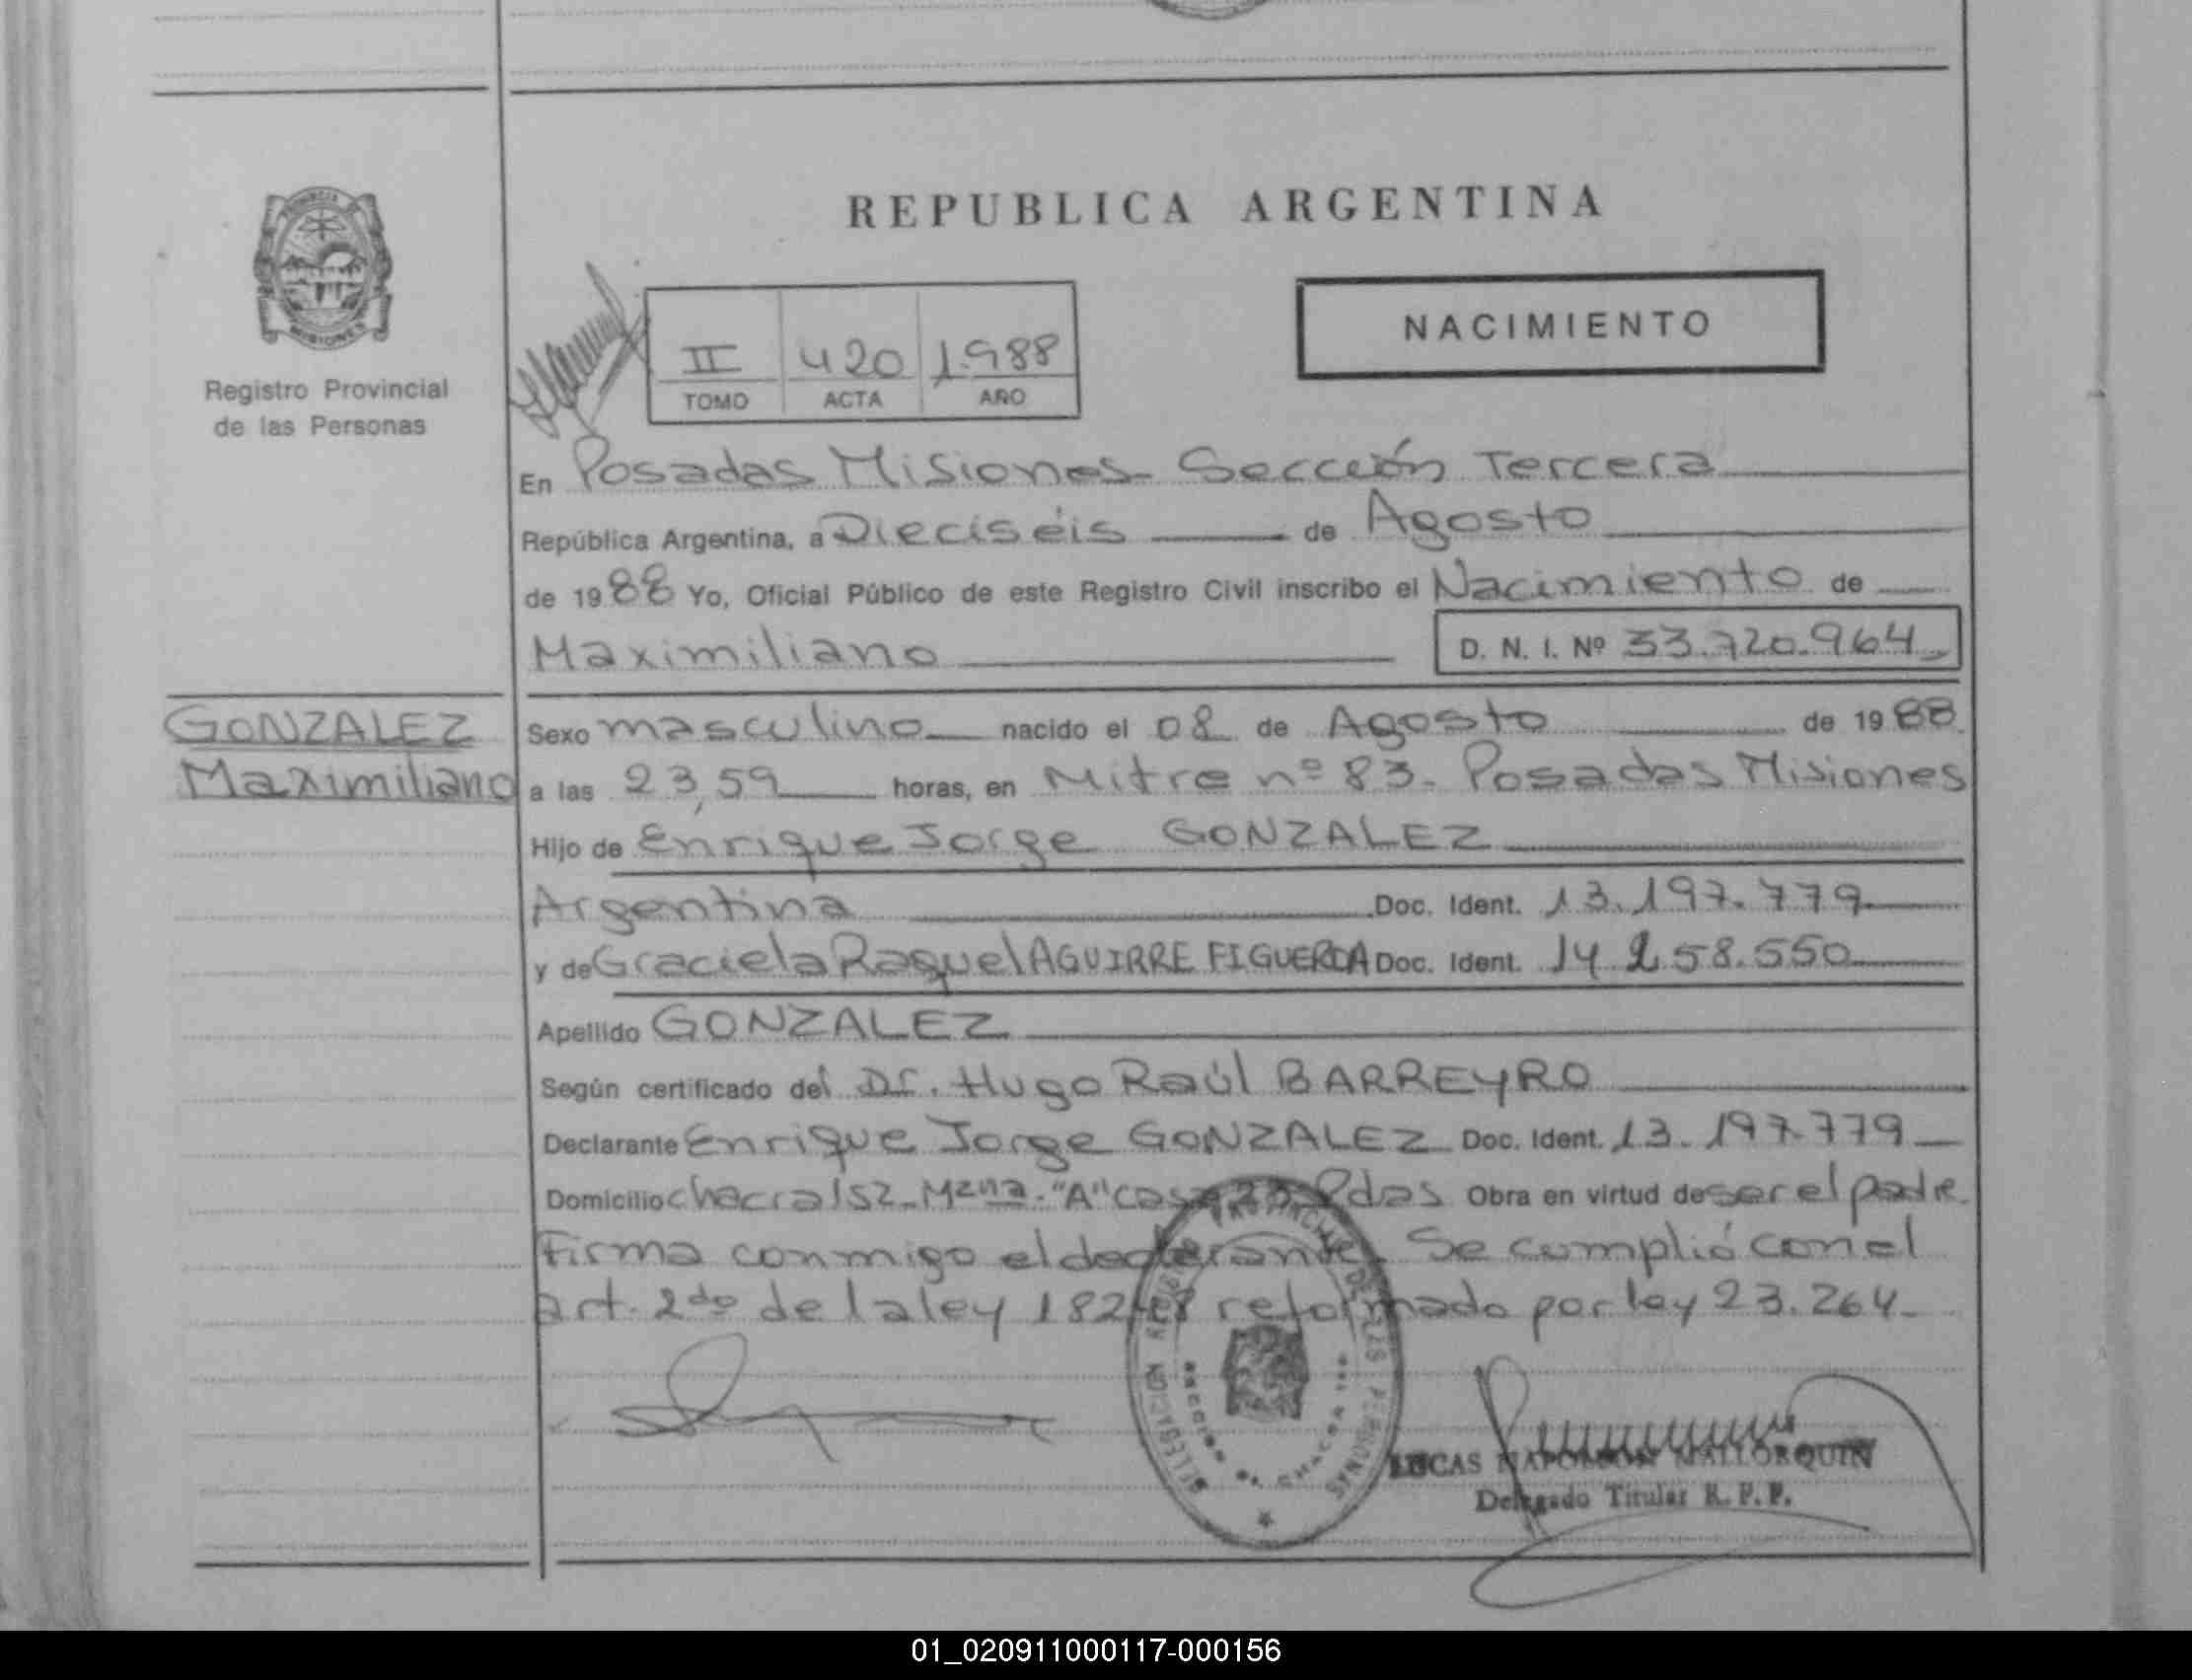 REPUBLICA ARGENTINA
PROVINCIA
MISIONES
Registro Provincial
de las Personas
II 420 1.988
TOMO ACTA AÑO
NACIMIENTO
En Posadas Misiones- Sección Tercera
República Argentina, a Dieciséis de Agosto
de 1988 Yo, Oficial Público de este Registro Civil inscribo el Nacimiento de
Maximiliano D. N. I. Nº 33.720.964
GONZALEZ
Maximiliano
Sexo masculino nacido el 08 de Agosto de 1988
a las 23,59 horas, en Mitre nº 83- Posadas Misiones
Hijo de Enrique Jorge GONZALEZ
Argentina Doc. Ident. 13.197.779
y de Graciela Raquel AGUIRRE FIGUEROA Doc. Ident. 14.258.550
Apellido GONZALEZ
Según certificado del Dr. Hugo Raúl BARREYRO
Declarante Enrique Jorge GONZALEZ Doc. Ident. 13.197.779
Domicilio chacra 152-Mzna."A" casa Pdas Obra en virtud de ser el padre
Firma conmigo el declarante. Se cumplió con el
art. 2do de la ley 18248 reformado por ley 23.264-
DELEGACION
DE LAS PERSONAS
LUCAS NAPOLEON MALLORQUIN
Delegado Titular R. P. P.
01_020911000117-000156